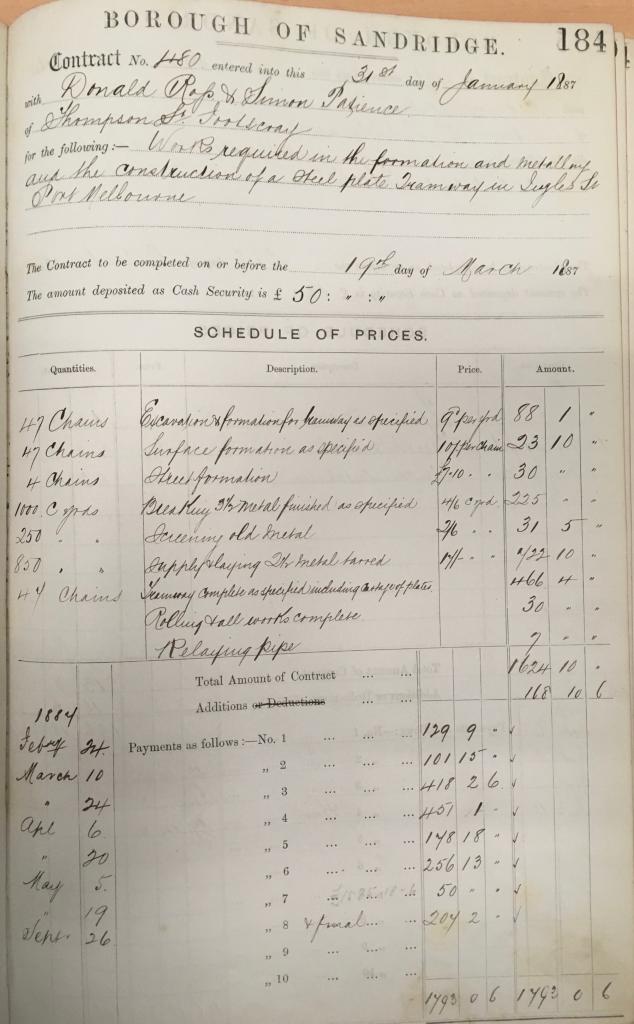 BOROUGH OF SANDRIDGE. 184
Contract No. 480 entered into this 31st day of January 1887
with Donald Ross & Simon Patience
of Thompson St. Footscray
for the following:— Works required in the formation and metalling
and the construction of a steel plate Tramway in Ingles St
Port Melbourne
The Contract to be completed on or before the 19th day of March 1887
The amount deposited as Cash Security is £ 50 : " : "
SCHEDULE OF PRICES.
Quantities. Description. Price. Amount.
47 Chains Excavation & formation for tramway as specified 9d per yrd 88 1 "
47 Chains Surface formation as specified 10/ per chain 23 10 "
4 Chains Street formation £7-10 . . 30 " "
1000 C yrds Breaking 2½ metal finished as specified 4/6 c yrd 225 " "
250 " " Screening old metal 2/6 " " 31 5 "
850 " " Supply & laying 2½ metal tarred 17/- " " 722 10 "
47 Chains Tramway complete as specified including cartage of plates 466 4 "
Rolling & all works complete 30 " "
Relaying pipe 7 " "
Total Amount of Contract ... ... 1624 10 "
Additions or Deductions ... ... 168 10 6
1887
Febry 24 Payments as follows:—No. 1 ... ... ... 129 9 "
March 10 „ 2 ... ... ... 101 15 "
" 24 „ 3 ... ... ... 418 2 6
Apl 6 „ 4 ... ... ... 451 1 "
" 20 „ 5 ... ... ... 178 18 "
May 5 „ 6 ... ... ... 256 13 "
" 19 „ 7 ... ... ... 50 " "
Sept. 26 „ 8 & final ... ... 207 2 "
„ 9 ... ... ...
„ 10 ... ... ...
1793 0 6 1793 0 6